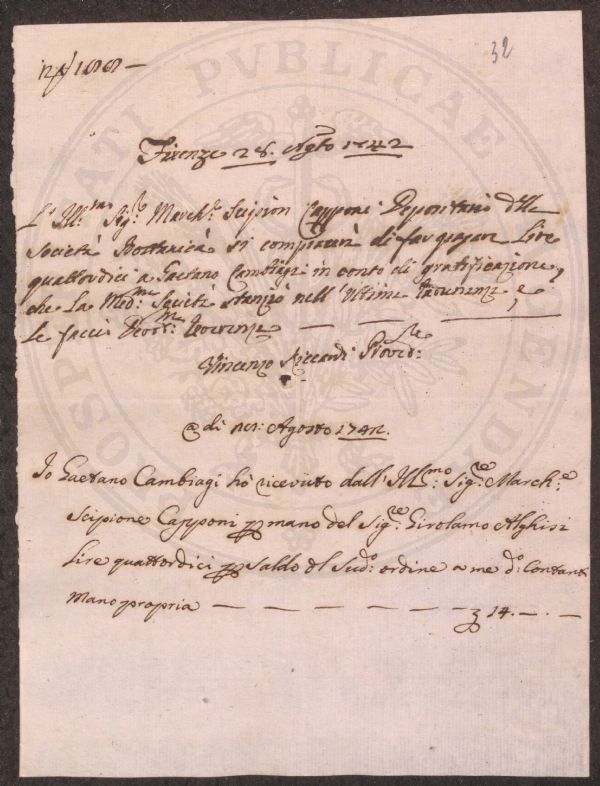 32
Firenze 28. Agto 1742
L'Illmo Sigr Marche Scipion Capponi Depositario dlla
Società Bottanica si compiacerà di far pagare Lire
quattordici a Gaetano Cambiagi in conto di gratificazione,
che La Medma Società stanziò nell'Ultima e,
Le facci
Vincenzo Riccardi Provre
@ di Agosto 1742
Io Gaetano Cambiagi hò ricevuto dall'Illmo: Sigre: Marche:
Scipione Capponi p mano del Sigre: Girolamo Alghisi
Lire quattordici p Saldo dl Sudo: ordine a me do: Contanti
Mano propria — — — — — — — 14. — . —
PROSPERITATI PVBLICAE AVGENDAE